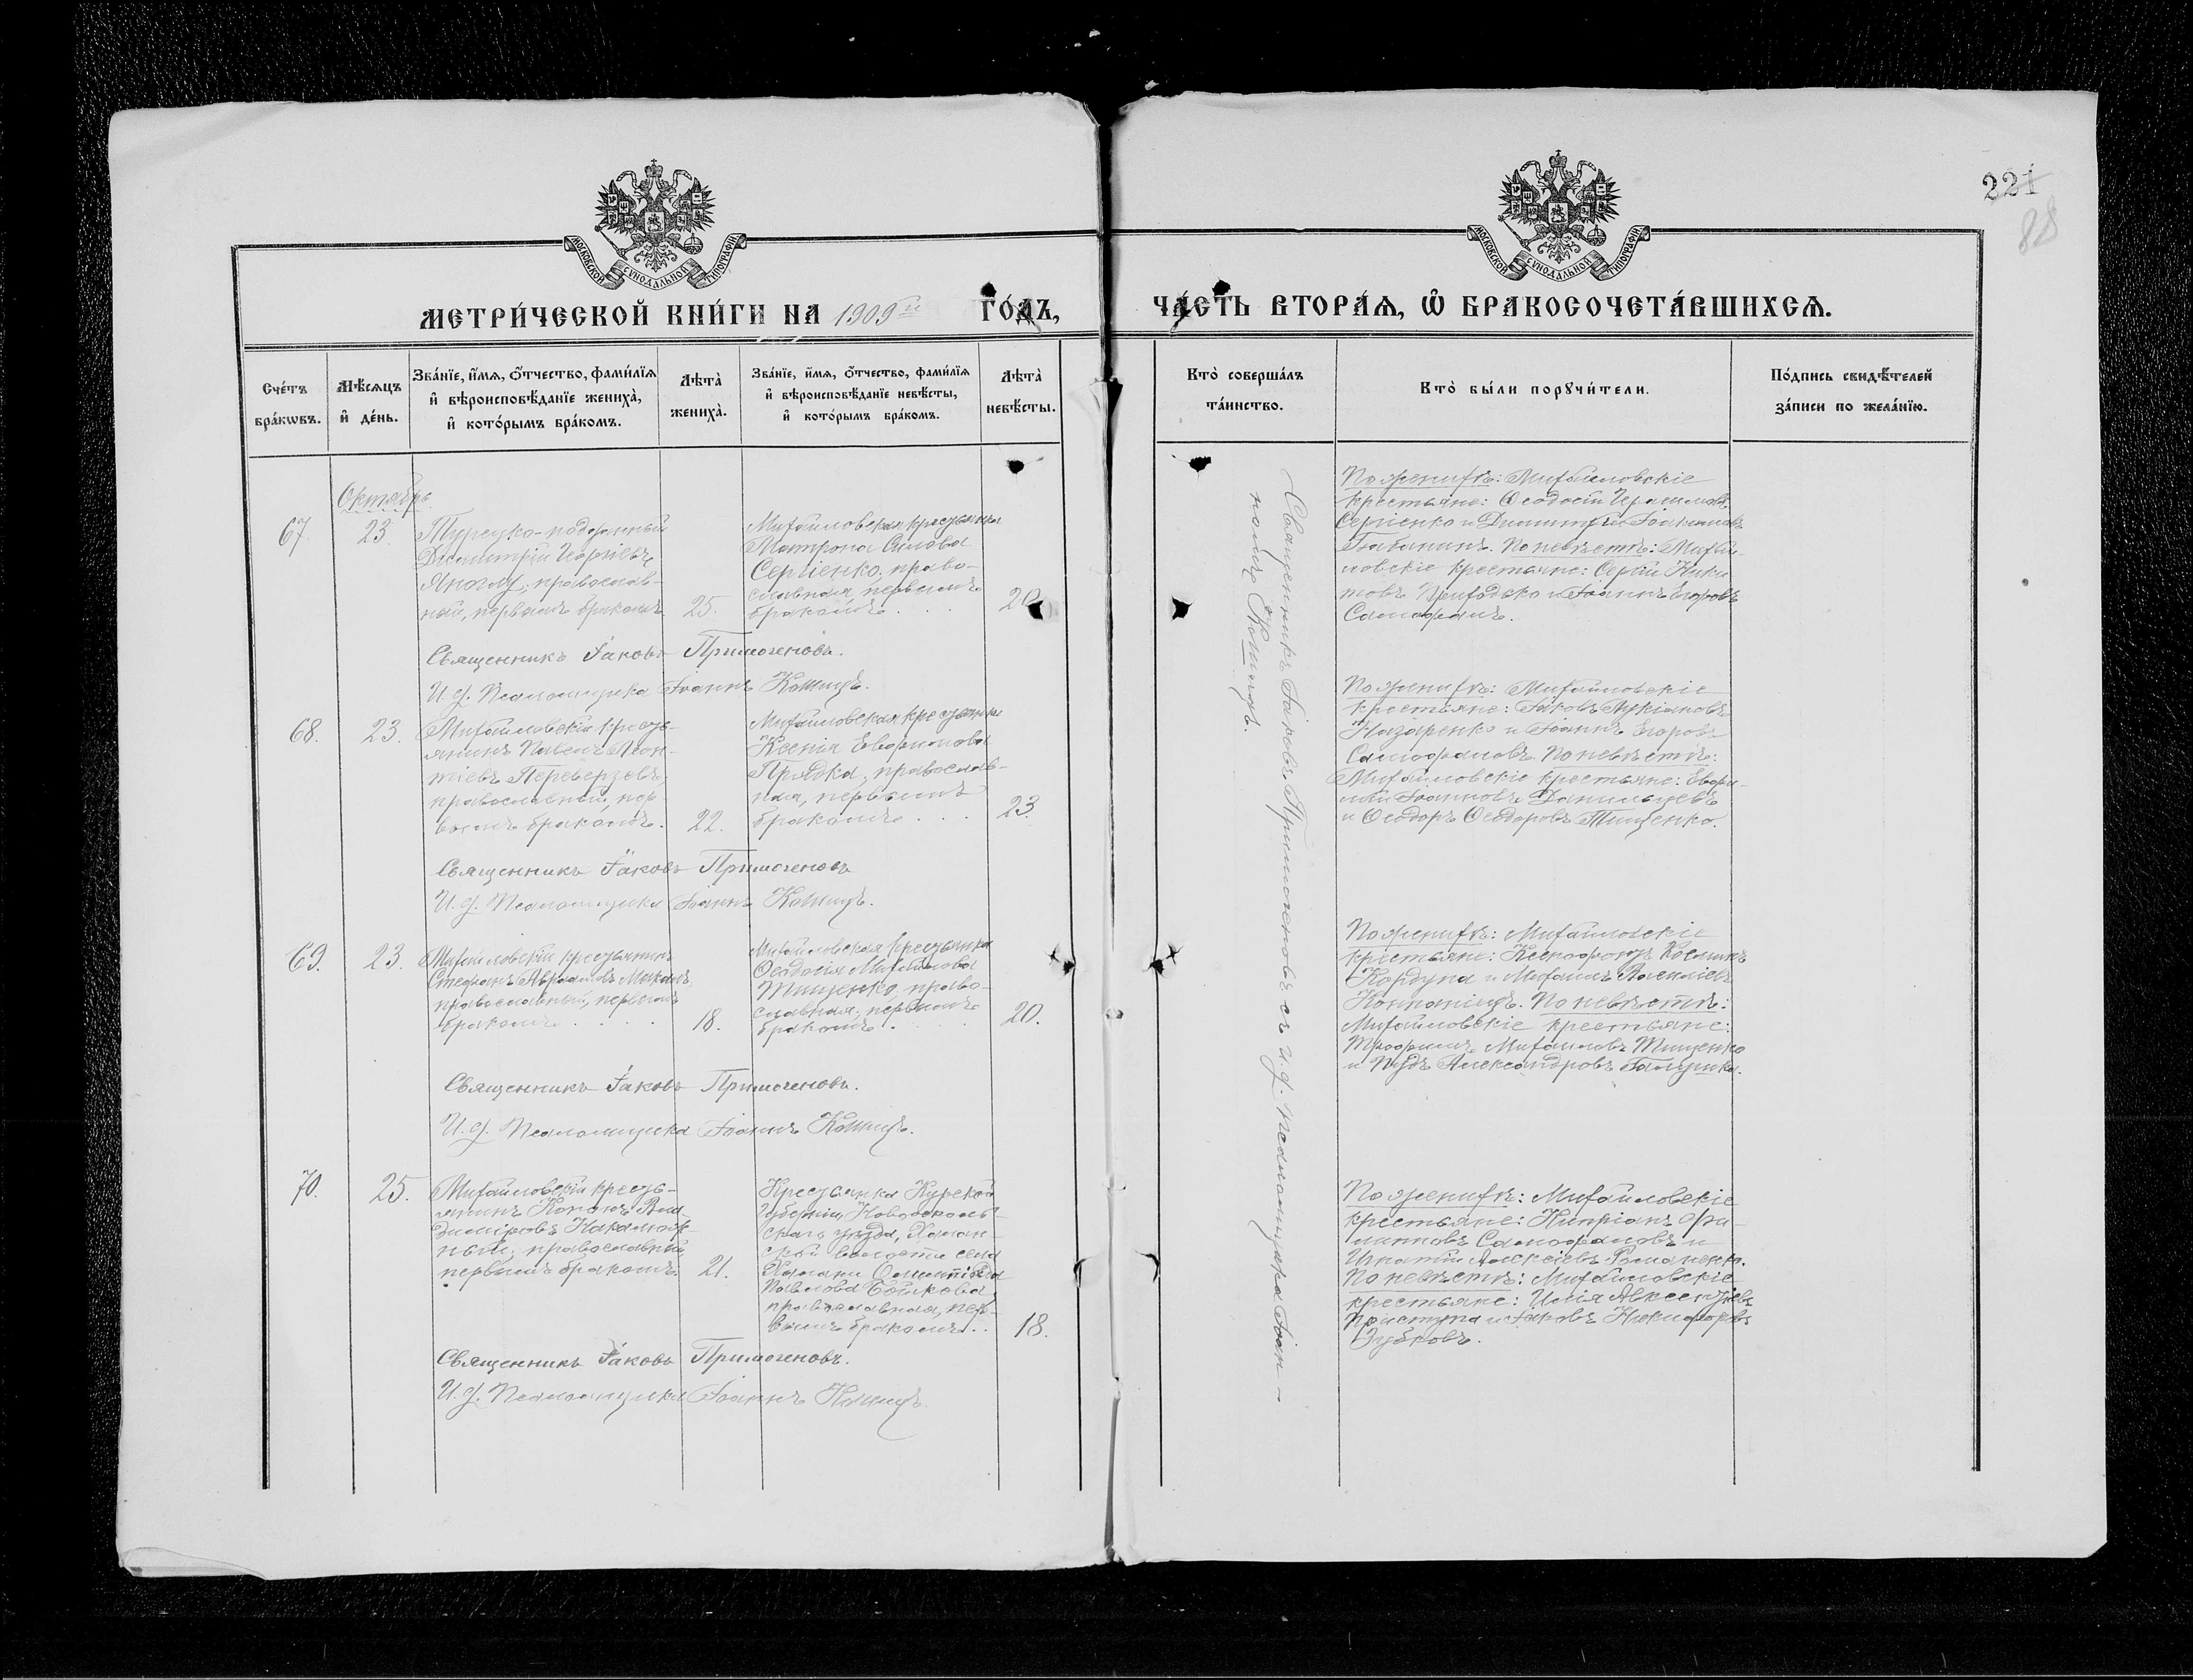 221
88
МОСКОВСКОЙ СУНОДАЛЬНОЙ ТИПОГРАФІИ
МОСКОВСКОЙ СУНОДАЛЬНОЙ ТИПОГРАФІИ
МЕТРИ́ЧЕСКОЙ КНИ́ГИ НА 1909й ГО́ДЪ,
ЧА́СТЬ ВТОРА́Ѧ, Ѽ БРАКОСОЧЕТА́ВШИХСѦ.
Сче́тъ бра́кѡвъ.
Мѣ́сѧцъ и҆ де́нь.
Зва́нїе, и҆́мѧ, ѻ҆́тчество, фами́лїѧ
и҆ вѣроисповѣ́данїе жениха̀,
и҆ кото́рымъ бра́комъ.
Лѣта̀ жениха̀.
Зва́нїе, и҆́мѧ, ѻ҆́тчество, фами́лїѧ
и҆ вѣроисповѣ́данїе невѣ́сты,
и҆ кото́рымъ бра́комъ.
Лѣта̀ невѣ́сты.
Кто̀ соверша́лъ та́инство.
Кто̀ бы́ли порꙋчи́тели.
По́дпись свидѣ́телей за́писи по жела́нїю.
Октябрь
67.
23.
Турецко-подданный
Димитрій Георгіевъ
православ-
ный, первымъ бракомъ
25.
Михайловская крестьянка
Матрона Силова
Сергіенко, право-
славная, первымъ
бракомъ . . .
20.
По женихѣ: Михайловскіе
крестьяне: Ѳеодосій Герасимовъ
Сергіенко и Димитрій Іоакимовъ
По невѣстѣ: Михай-
ловскіе крестьяне: Сергій Ники-
товъ Приходько и Іоаннъ Егоровъ
Священникъ Іаковъ Примогеновъ.
И. д. Псаломщика Іоаннъ Кошицъ.
68.
23.
Михайловскій кресть-
янинъ Павелъ Леон-
тіевъ Переверзевъ,
православный, пер-
вымъ бракомъ.
22.
Михайловская крестьянка
Ксенія Евфимова
Прядка, православ-
ная, первымъ
бракомъ . . .
23.
По женихѣ: Михайловскіе
крестьяне: Іаковъ Лукіановъ
Назаренко и Іоаннъ Егоровъ
Самофаловъ. По невѣстѣ:
Михайловскіе крестьяне: Евфи-
мій Іоанновъ Данильцевъ
и Ѳеодоръ Ѳеодоровъ Тищенко.
Священникъ Іаковъ Примогеновъ
И. д. Псаломщика Іоаннъ Кошицъ.
69.
23.
Михайловскій крестьянинъ
Стефанъ Авраамовъ
православный, первымъ
бракомъ . . . .
18.
Михайловская крестьянка
Ѳеодосія Михайлова
Тищенко, право-
славная, первымъ
бракомъ .
20.
По женихѣ: Михайловскіе
крестьяне: Ксенофонтъ Косминъ
Кордупа и Михаилъ Василіевъ
По невѣстѣ:
Михайловскіе крестьяне:
Трофимъ Михайловъ Тищенко
и Александровъ
Священникъ Іаковъ Примогеновъ.
И. д. Псаломщика Іоаннъ Кошицъ.
70.
25.
Михайловскій кресть-
янинъ Кононъ Вла-
диміровъ
православный,
первымъ бракомъ.
21.
Крестьянка Курской
губерніи, Новооскольс-
скаго уѣзда, Халан-
ской волости села
Халани Олимпіада
Павлова Бойкова,
православная, пер-
вымъ бракомъ..
18.
По женихѣ: Михайловскіе
крестьяне: Кипріанъ Фи-
липповъ Самофаловъ и
Игнатій Алексіевъ Романенко.
По невѣстѣ: Михайловскіе
крестьяне: Илія Авксентіевъ
Приступа и Іаковъ Никифоровъ
Зубковъ.
Священникъ Іаковъ Примогеновъ.
И. д. Псаломщика Іоаннъ Кошицъ.
Священникъ Іаковъ Примогеновъ съ и. д. псаломщика Іоан-
номъ Кошицъ.